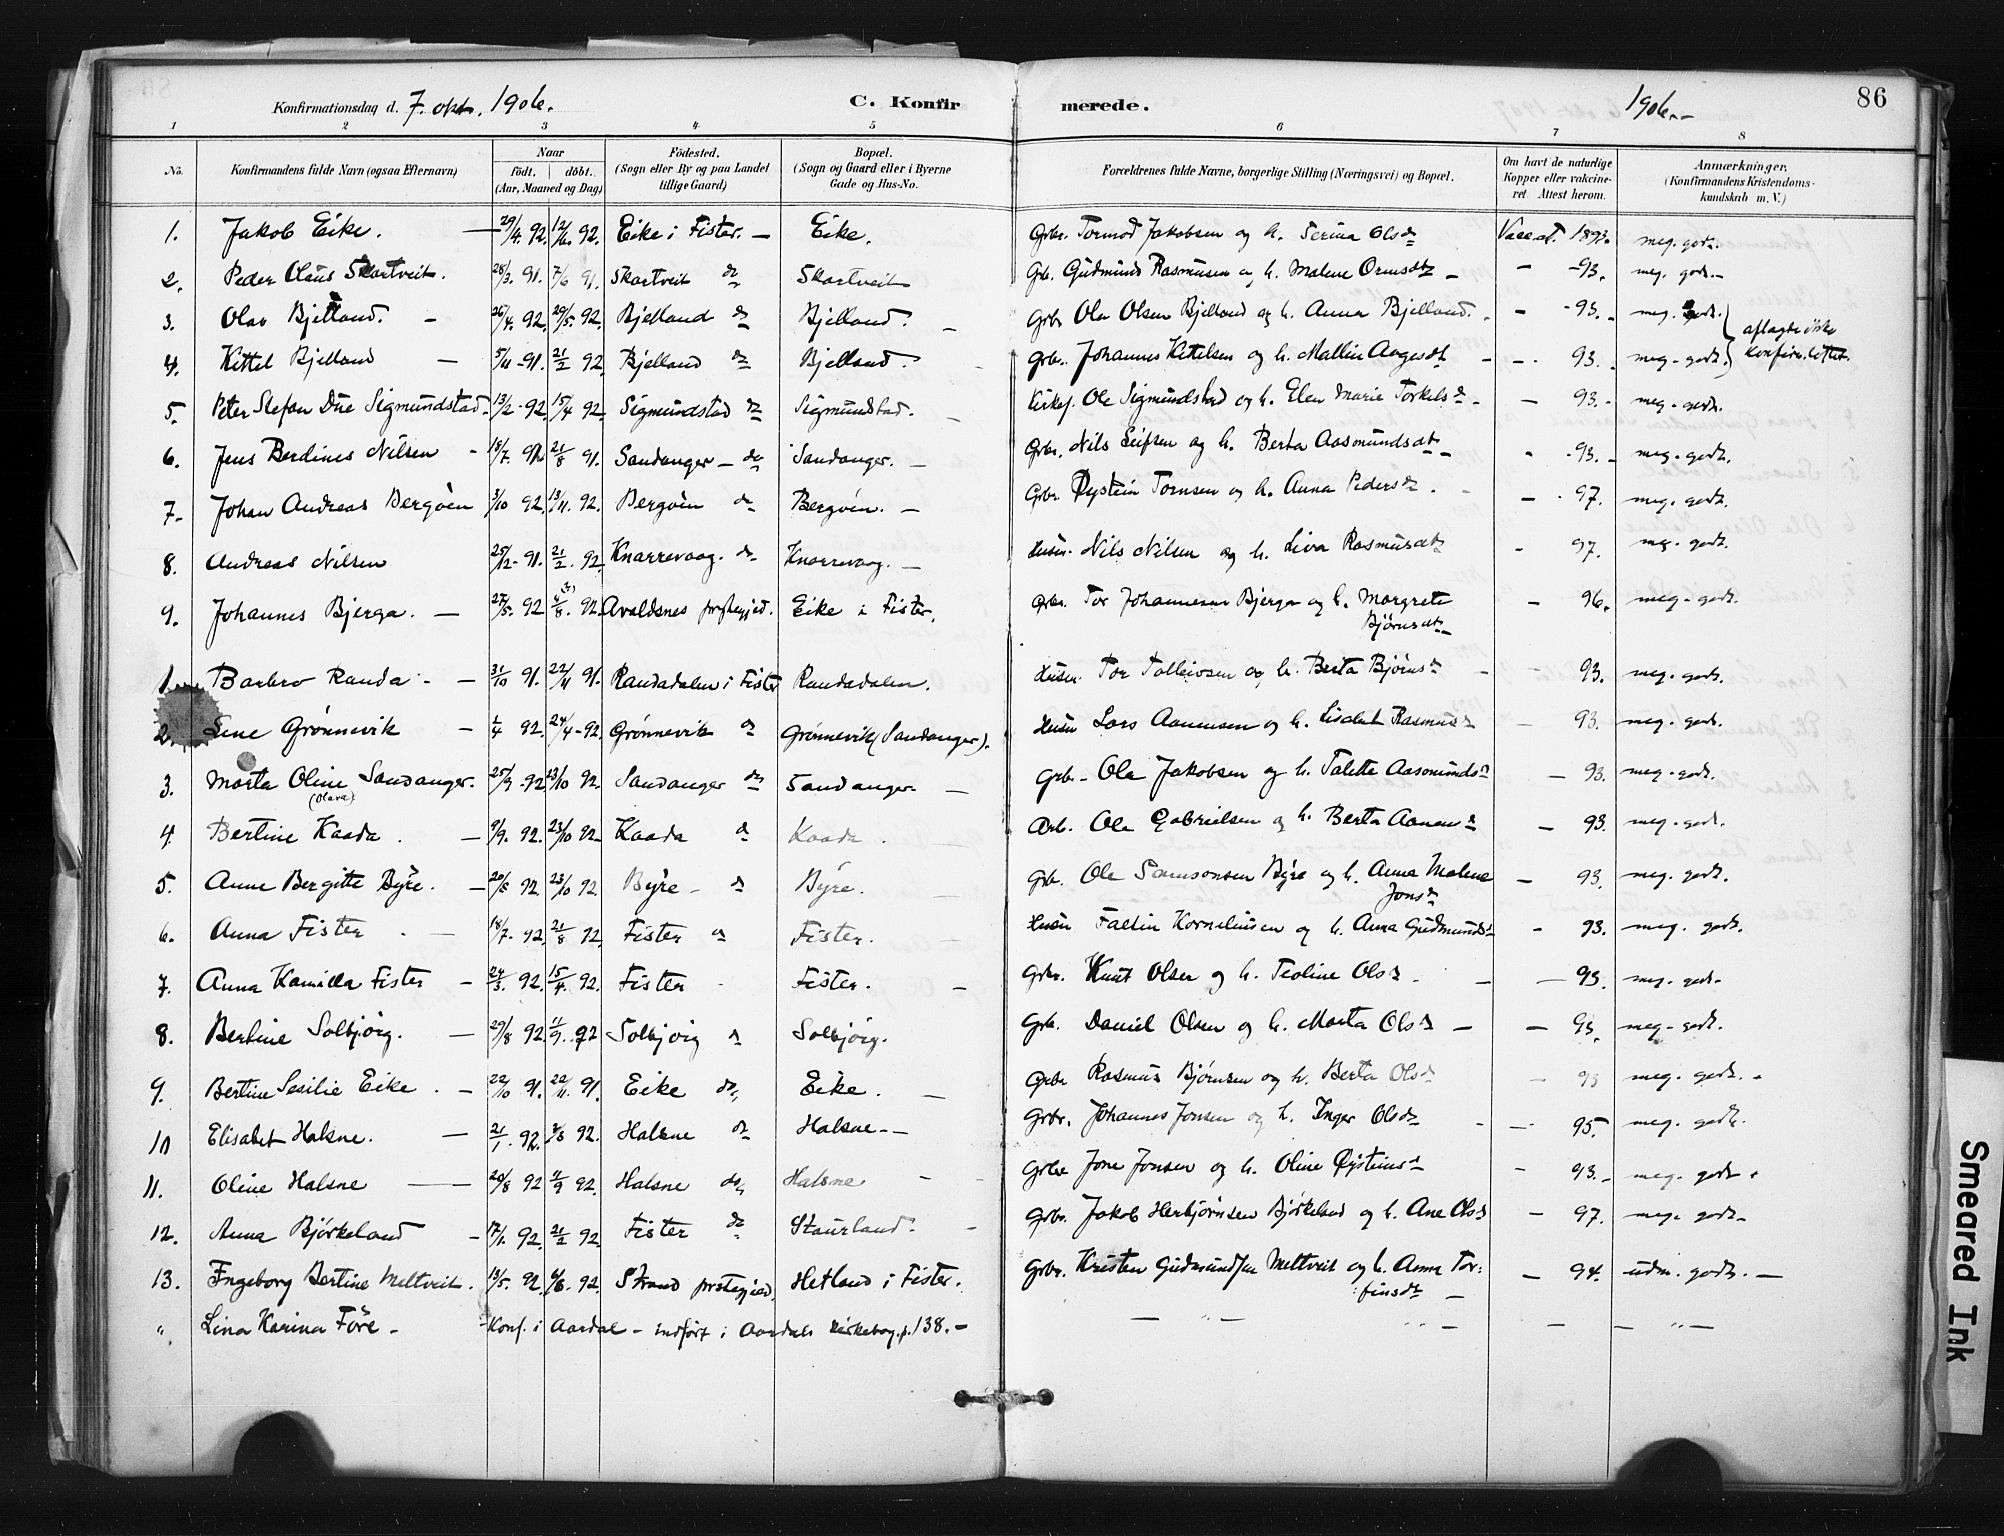 Konfirmationsdag d. 7. okt. 1906. C. Konfirmerede. 1906.- 86
1 2 3 4 5 6 7 8
No. Konfirmandens fulde Navn (ogsaa Efternavn) Naar födt. döbt. (Aar, Maaned og Dag) Födested. (Sogn eller By og paa Landet tillige Gaard) Bopæl. (Sogn og Gaard eller i Byerne Gade og Hus-No. Forældrenes fulde Navne, borgerlige Stilling (Næringsvei) og Bopæl. Om havt de naturlige Kopper eller vakcineret. Attest herom. Anmærkninger. (Konfirmandens Kristendomskundskab m. V.)
1. Jakob Eike. 29/4. 92. 12/6. 92. Eike i Fister. - Eike. Grbr. Tormod Jakobsen og h. Serina Olsdr Vacc. at. 1893. meg. godt.
2. Peder Olaus Skartveit. 28/3. 91. 7/6 91. Skartveit do Skartveit Grb. Gudmund Rasmusen og h. Malene Ormsdtr - - -93. meg. godt.-
3. Olav Bjelland. - 26/4. 92. 29/5. 92. Bjelland do Bjelland. - Grbr Ola Olsen Bjelland og h. Anna Bjelland. - -93. - meg. godt. } aflagde ikke
4. Kittel Bjelland - 5/11 -91. 21/2 92. Bjelland do Bjelland. Grb. Johannes Kittelsen og h. Mallin Aagesdt - - 93. meg-godt. } konfirm.løftet.
5. Peter Stefan Due Sigmundstad. 13/2 -92. 15/4 92. Sigmundstad do Sigmundstad. Kirkes. Ole Sigmundstad og h. Elen Marie Torkelsdr - - 93.- meg-godt.
6. Jens Berdines Nilsen - 18/7. 91. 21/8 91. Sandanger - do Sandanger. - Grbr. Nils Leifsen og h. Berta Aasmundsdtr - -93. - meg-godt.
7. Johan Andreas Bergøen 3/10 92. 13/11. 92. Bergöen do Bergøen. - Grbr. Øystein Tornsen og h. Anna Pedersdr. - 97. meg. godt.
8. Andreas Nilsen 25/12- 91. 21/2. 92. Knarrevaag. do Knarrevaag. - Husm. Nils Nilsen og h. Liva Rasmusdtr - 97. meg-godt.
9. Johannes Bjerga. - 27/5. 92 4/8. 92. Avaldsnes prestegjed. Eike i Fister. Grbr. Tor Johannesen Bjerga og h. Margrete - 96. meg-godt.
Björnsdtr
1. Barbro Randa - - 31/10 91. 22/11 91. Randadalen i Fister Randadalen. Husm. Tor Tolleivsen og h. Berta Björnsdr - - 93. meg. godt.
2. Lene Grönnevik - 1/4 92. 24/4 -92. Grönnevik do Grönnevik (Sandanger). Husm Lars Aanensen og h. Lisabet Rasmusdr - 93. meg. godt.
3. Marta Oline Sandanger. 25/9 -92. 23/10 92. Sandanger do Sandanger. - Grb. - Ole Jakobsen og h. Talette Aasmundsdr - 93. meg-godt.
(Olava)
4. Bertine Kaada . - 9/9. 92. 23/10 92. Kaada do Kaada . Arb. Ole Gabrielsen og h. Berta Aanensdr - 93. meg-godt.
5. Anne Bergitte Byre. - 20/8 92. 23/10 92. Byre - do Byre. Grb. Ole Samsonsen Byre og h. Anna Malene - 93. meg. godt.
Jonsdr
6. Anna Fister . - 18/7. 92. 21/8 92. Fister do Fister. Husm Faltin Korneliussen og h. Anna Gudmundsdr - 93. meg. godt.
7. Anna Kamilla Fister - 24/3. 92. 15/4. 92. Fister - Fister. - Grbr. Knut Olsen og h. Teoline Olsdr. - - 93. meg. godt.
8. Bertine Solbjörg. - 29/8 92. 11/9. 92 Solbjörg do Solbjörg. Grb. Daniel Olsen og h. Marta Olsdr - - 93. meg-godt.
9. Bertine Sesilie Eike . - 22/10 91. 22/11. 91. Eike do Eike. - Grbr Rasmus Bjørnsen og h. Berta Olsdr - 93 meg. godt. -
10 Elisabet Halsne. - 21/1. 92. 92. Halsne do Halsne-- Grbr. Johannes Jonsen og h. Inger Olsdr - - 95. meg. godt.
11. Oline Halsne - 20/8 92 11/9 92. Halsne do Halsne - Grbr Jone Jonsen og h. Oline Øystensdr - 93. - meg. godt .
12. Anna Björkeland - 17/1. 92. 21/2 92. Fister do Staurland. - Grbr. Jakob Herbjørnsen Bjørkeland og h. Ane Olsdr - 97. meg. godt-
13. Ingeborg Bertine Meltveit. 19/5. 92. 6/6. 92. Strand prestegjeld. Hetland i Fister. Grbr. Kristen Gudmundsen Meltveit og h. Anna Tor: - 94. udm. godt. -
finsdtr -
" Lina Karina Före - - Konf. i Aardal - indført i Aardals kirkebog. p. 138. - - " - " " - - - " -
Smeared Ink